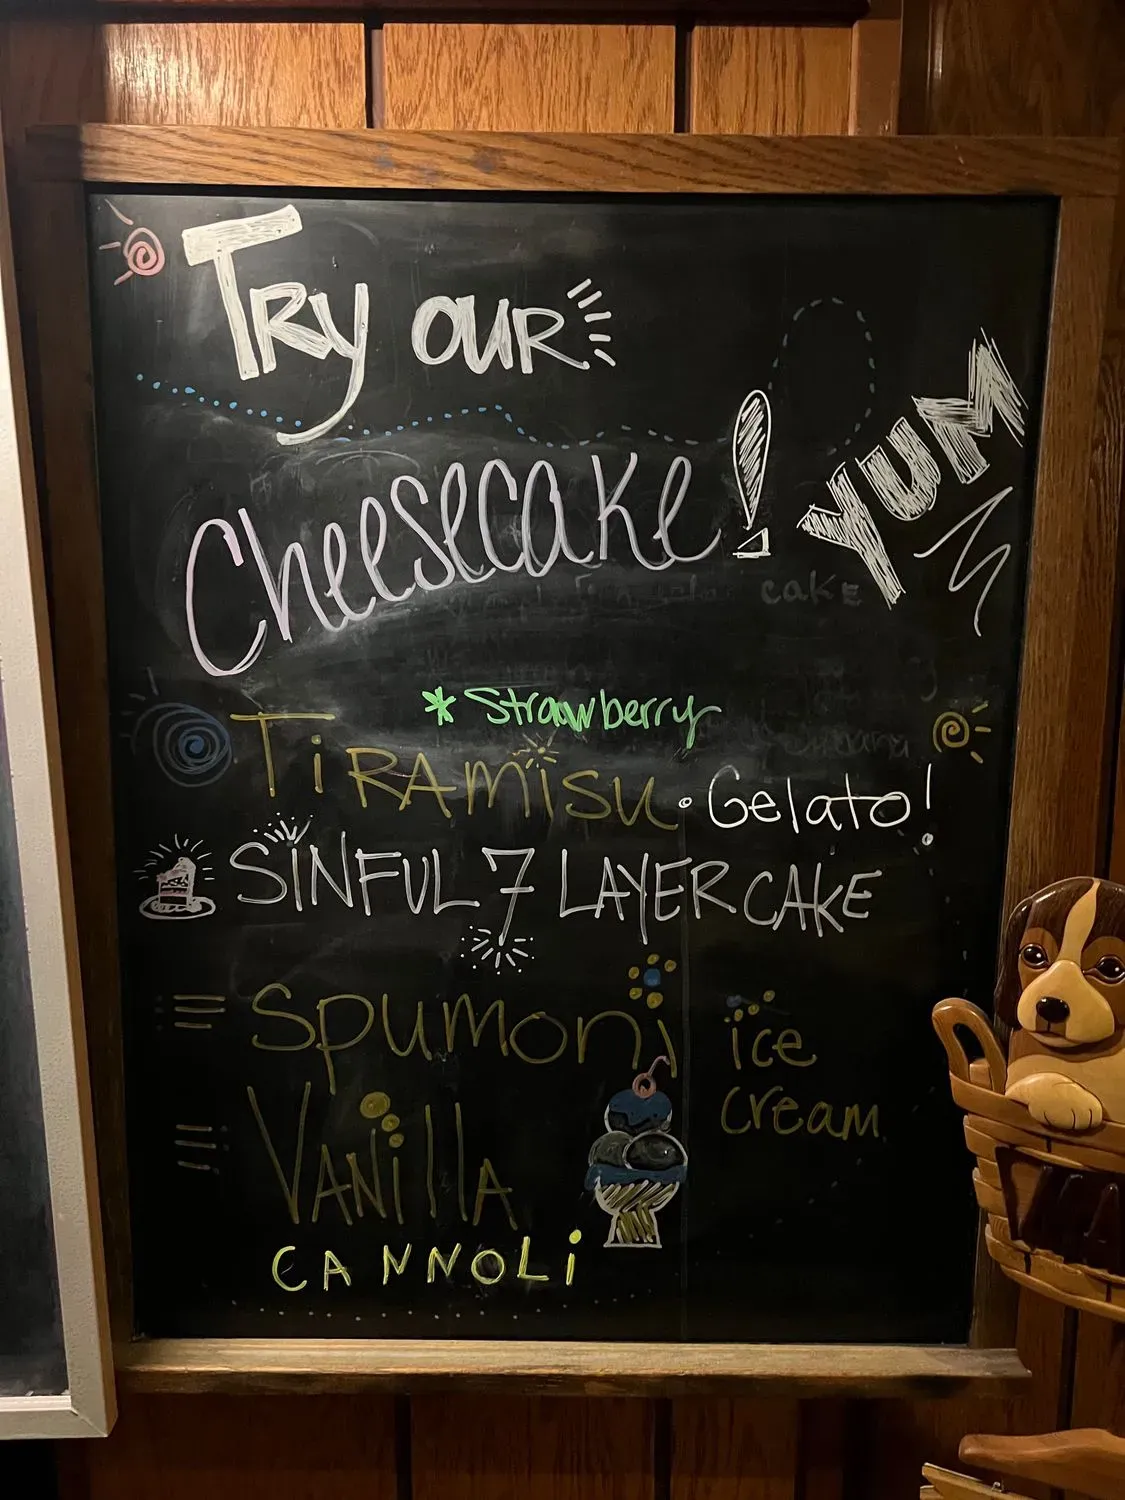 TRy our
Cheesecake!
YUM
cake
* Strawberry
TiRAmiSu • Gelato!
SiNFUL 7 LAYER CAKE
= Spumoni ice
cream
= VANillA
CANNOLi